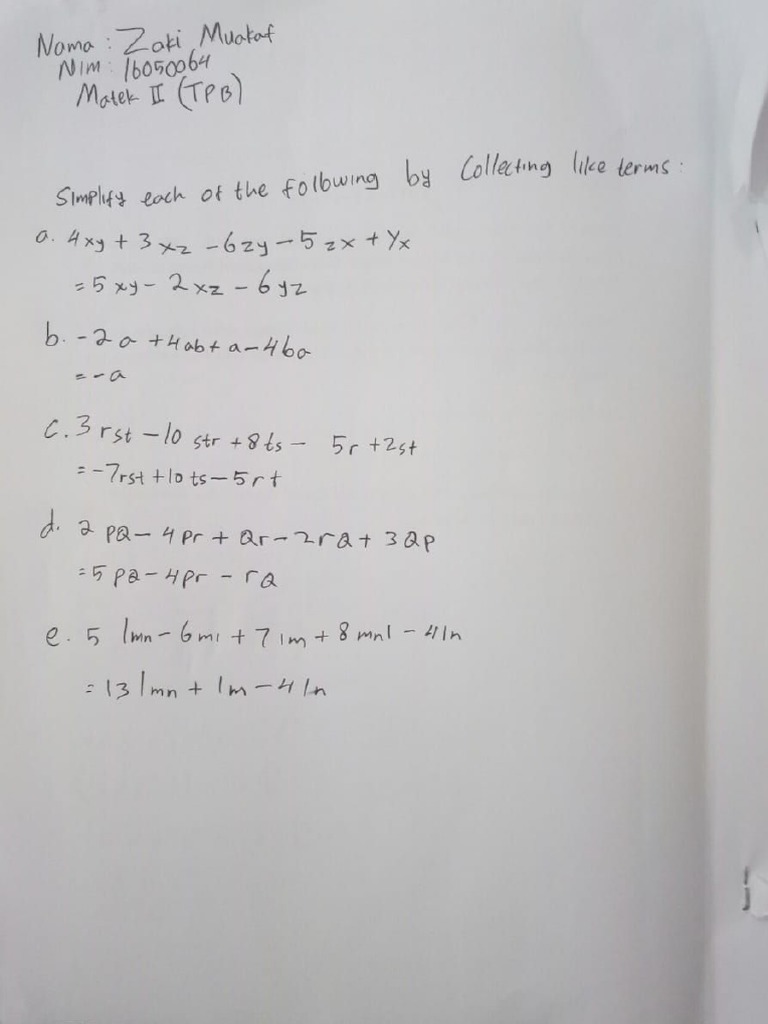 Nama : Zaki Muakaf
Nim : 16050064
Matek II (TPB)
Simplify each of the following by Collecting like terms :
a. 4xy + 3xz - 6zy - 5zx + Yx
= 5xy - 2xz - 6yz
b. -2a + 4ab + a - 4ba
= -a
c. 3rst - 10 str + 8ts - 5r + 2st
= -7rst + 10 ts - 5rt
d. 2 pQ - 4pr + Qr - 2rQ + 3Qp
= 5pQ - 4pr - rQ
e. 5 lmn - 6ml + 7lm + 8mnl - 4ln
= 13 lmn + lm - 4 ln